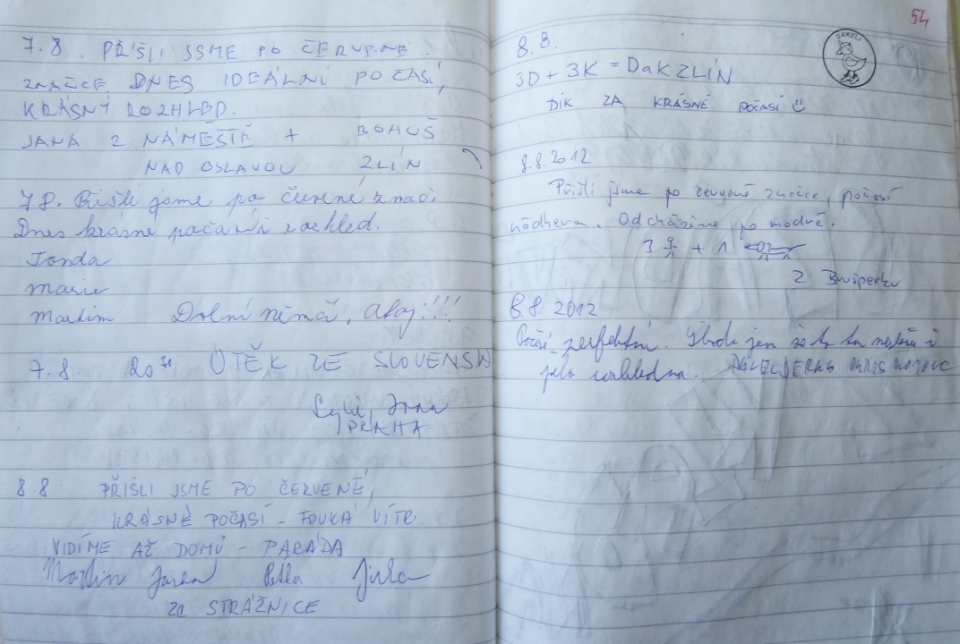 7.8. PŘIŠLI JSME PO ČERVENÉ
ZNAČCE, DNES IDEÁLNÍ POČASÍ,
KRÁSNÝ ROZHLED.
JANA Z NÁMĚŠTĚ + BOHUŠ
NAD OSLAVOU ZLÍN
7.8. Přišli jsme po červené znač.
Dnes krásné počasí i rozhled.
Tonda
Marie
Martin Dolní němčí, Ahoj!!!
7.8. 20³⁰ ÚTĚK ZE SLOVENSK
Jana
PRAHA
8.8 PŘIŠLI JSME PO ČERVENÉ,
KRÁSNÉ POČASÍ - FOUKÁ VÍTR
VIDÍME AŽ DOMŮ - PARÁDA
Martin Petra Jirka
ZE STRÁŽNICE
54
8.8.
3D + 3K = DaK ZLÍN
DAKZLÍ
DÍK ZA KRÁSNÉ POČASÍ
8.8.2012
Přišli jsme po červené značce, počasí
nádhera. Odcházíme po modré.
3 + 1
z Brušperku
8.8.2012
Počasí perfektní. Škoda jen že to tu neslouží
jako rozhledna.